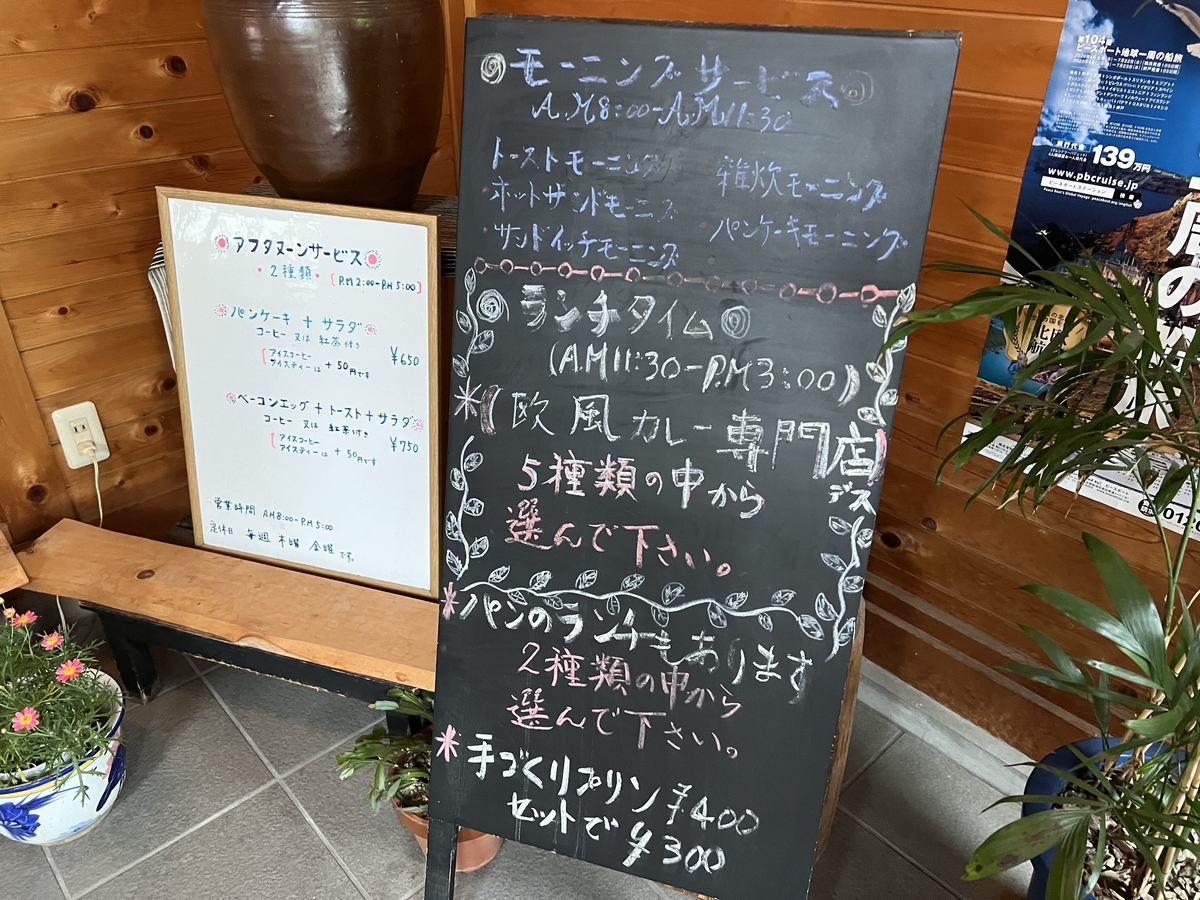 アフタヌーンサービス
・2種類・ [P.M 2:00-P.M 5:00]
パンケーキ + サラダ
コーヒー 又は 紅茶付き
アイスコーヒー
アイスティーは + 50円です
¥650
ベーコンエッグ + トースト + サラダ
コーヒー 又は 紅茶付き
アイスコーヒー
アイスティーは + 50円です
¥750
営業時間 A.M 8:00-P.M 5:00
定休日 毎週 木曜 金曜 です。
モーニングサービス
A.M.8:00-A.M.11:30
トーストモーニング
ホットサンドモーニング
サンドイッチモーニング
雑炊モーニング
パンケーキモーニング
ランチタイム
(A.M 11:30-P.M 3:00)
*(欧風カレー専門店)
デス
5種類の中から
選んで下さい。
*パンのランチもあります
2種類の中から
選んで下さい。
*手づくりプリン ¥400
セットで ¥300
第104回
ピースボート地球一周の船旅
旅行代金
139万円
www.pbcruise.jp
ピースボートステーション 検索